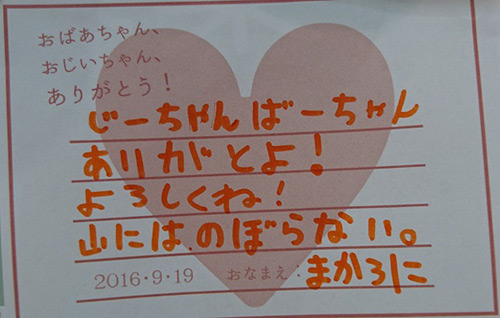 おばあちゃん、
おじいちゃん、
ありがとう！
じーちゃんばーちゃん
ありがとよ！
よろしくね！
山には.のぼらない。
2016・9・19 おなまえ：まかろに